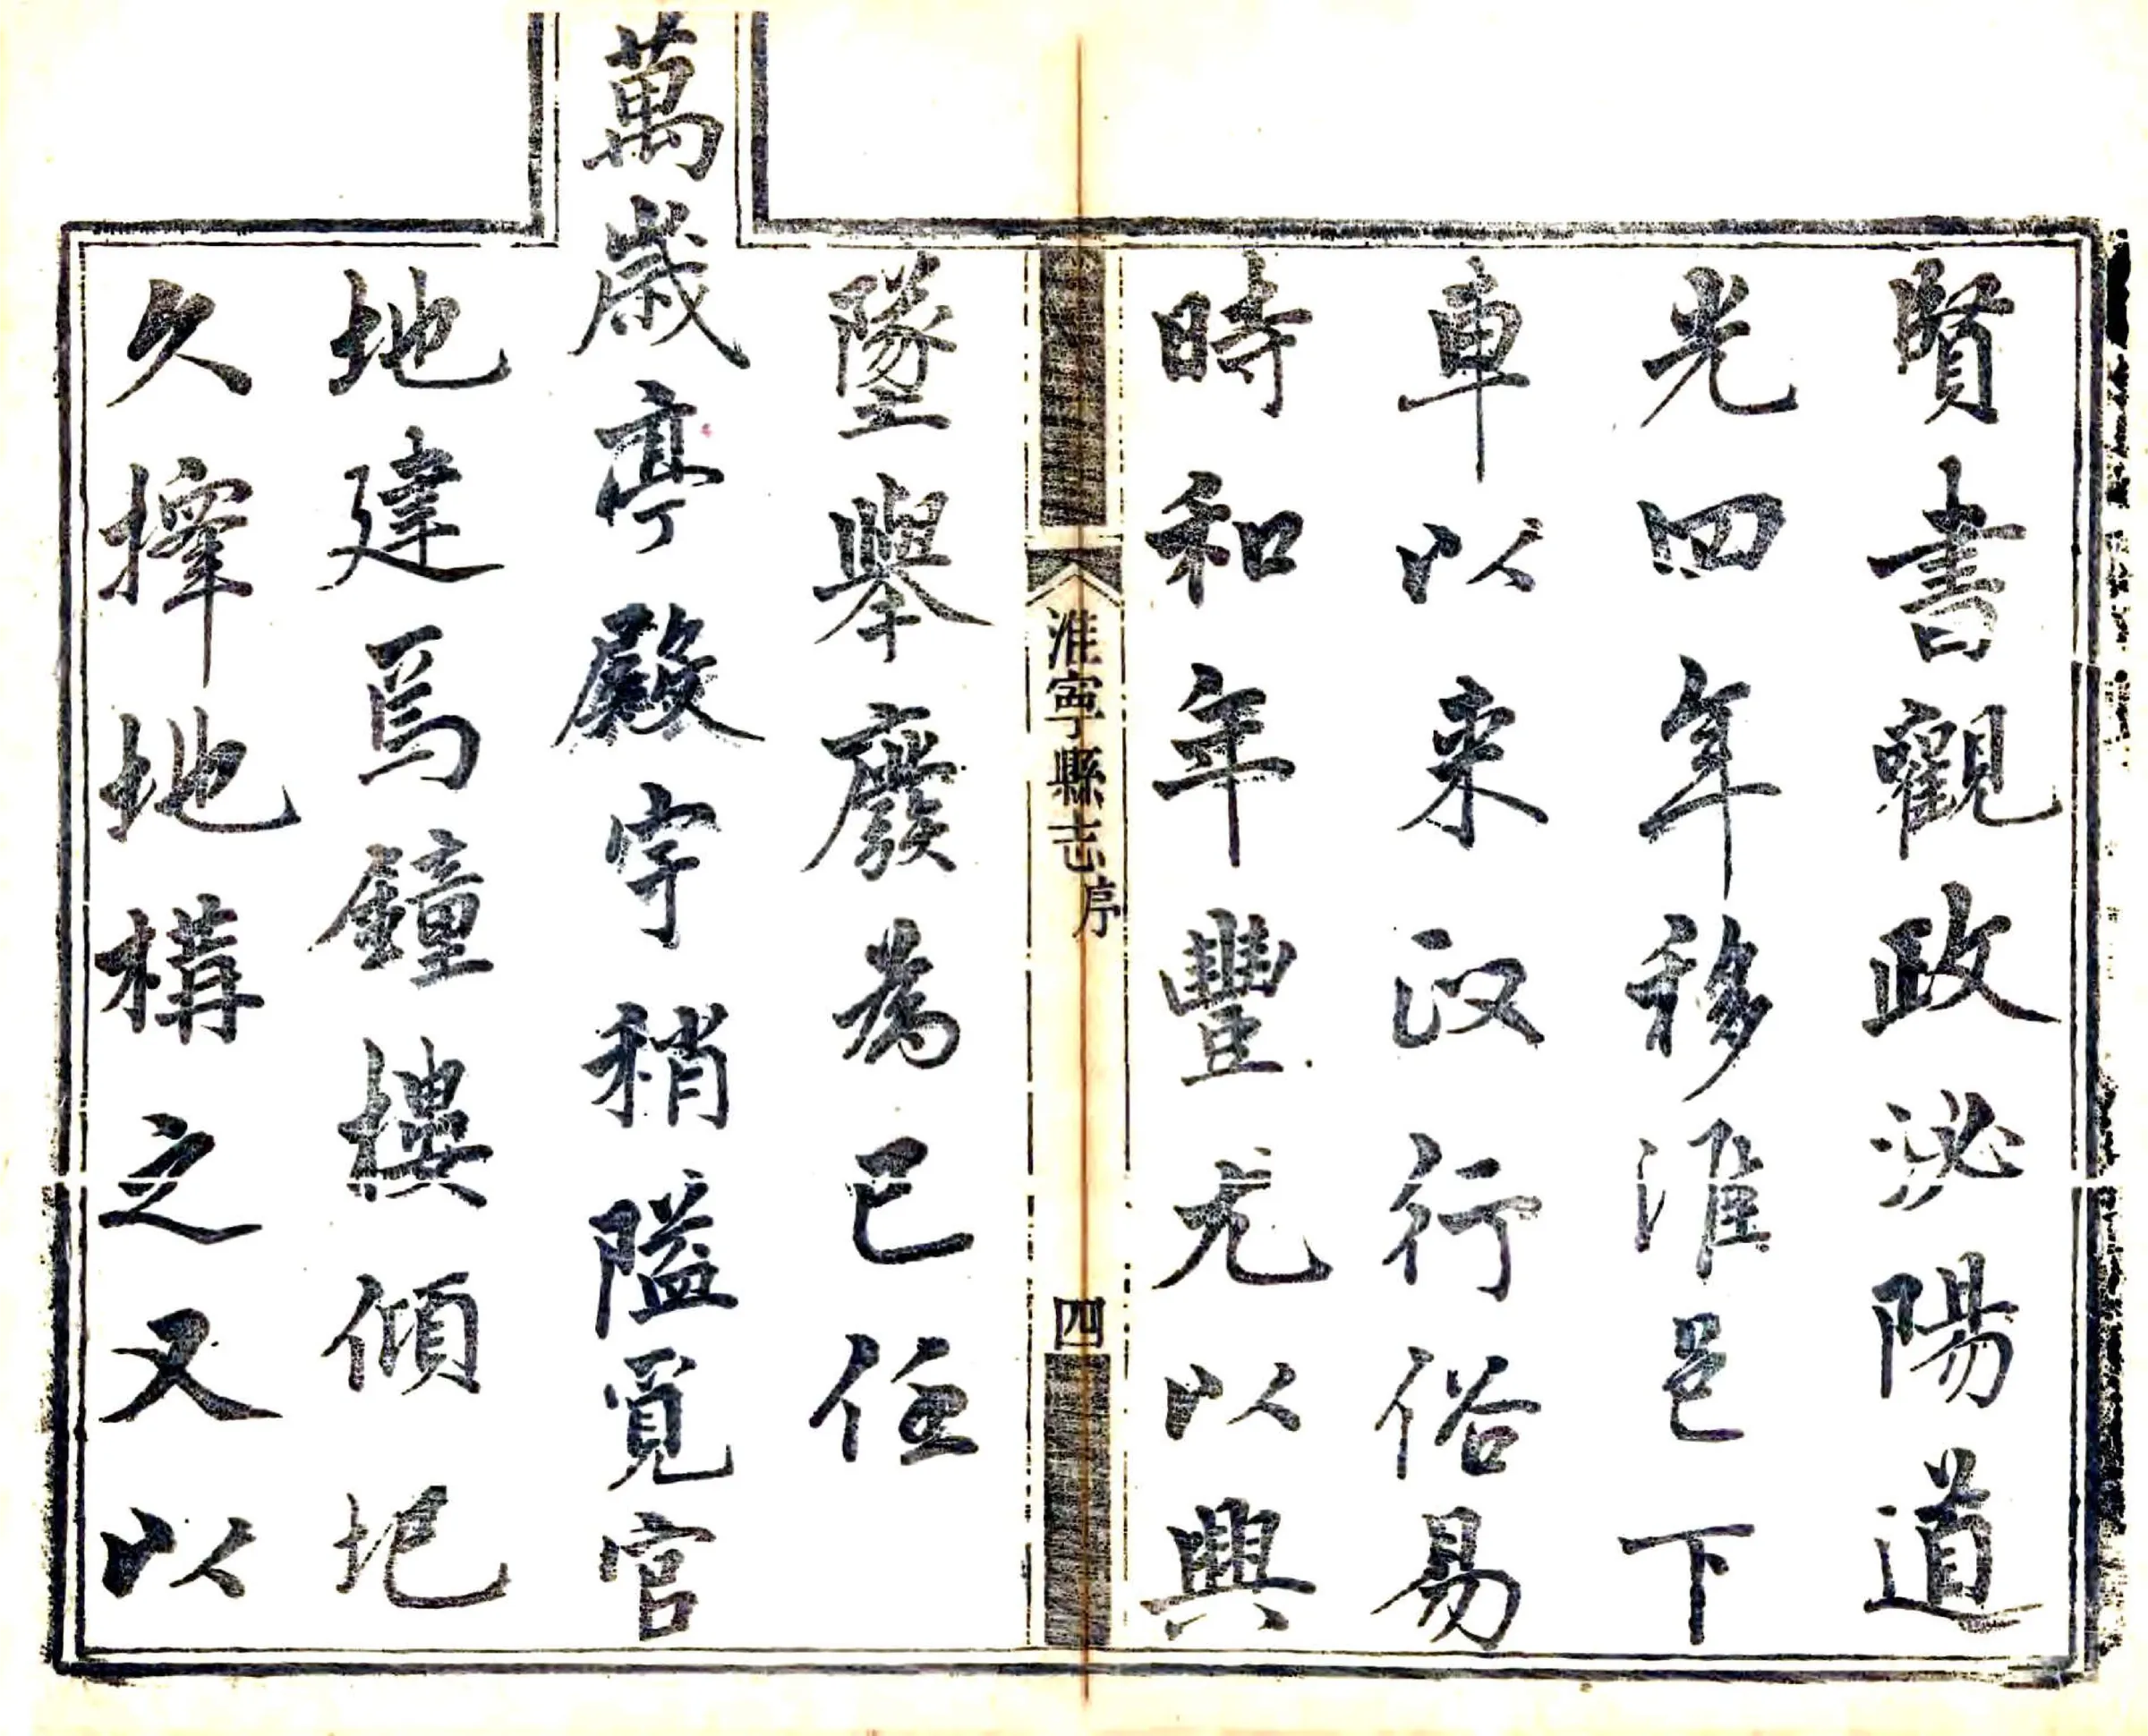 賢書觀政泌陽道
光四年移淮邑下
車以来政行俗易
時和年豐尤以興
墜舉廢為己任
萬歲亭殿宇稍隘覓官
地建爲鐘樓傾圮
久擇地構之又以
淮寧縣志
序
四